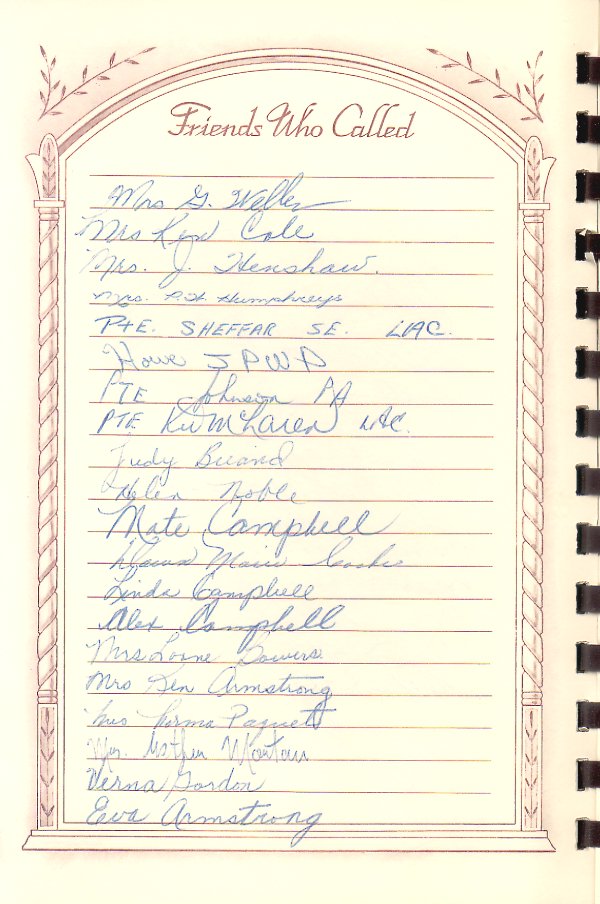 Friends Who Called
Mrs G. Weller
Mrs Ken Cole
Mrs. J. Henshaw.
Mrs. P.H. Humphreys
PTE. SHEFFAR SE. LIAC.
Howe J P W P
PTE Johnson PA
PTE McLaren LIAC.
Judy Briand
Helen Noble
Mate Campbell
Dawn Marie Cooke
Linda Campbell
Alex Campbell
Mrs Lorne Towers
Mrs Ken Armstrong
Mrs Norma Paquett
Mrs. Esther
Verna Gordon
Eva Armstrong